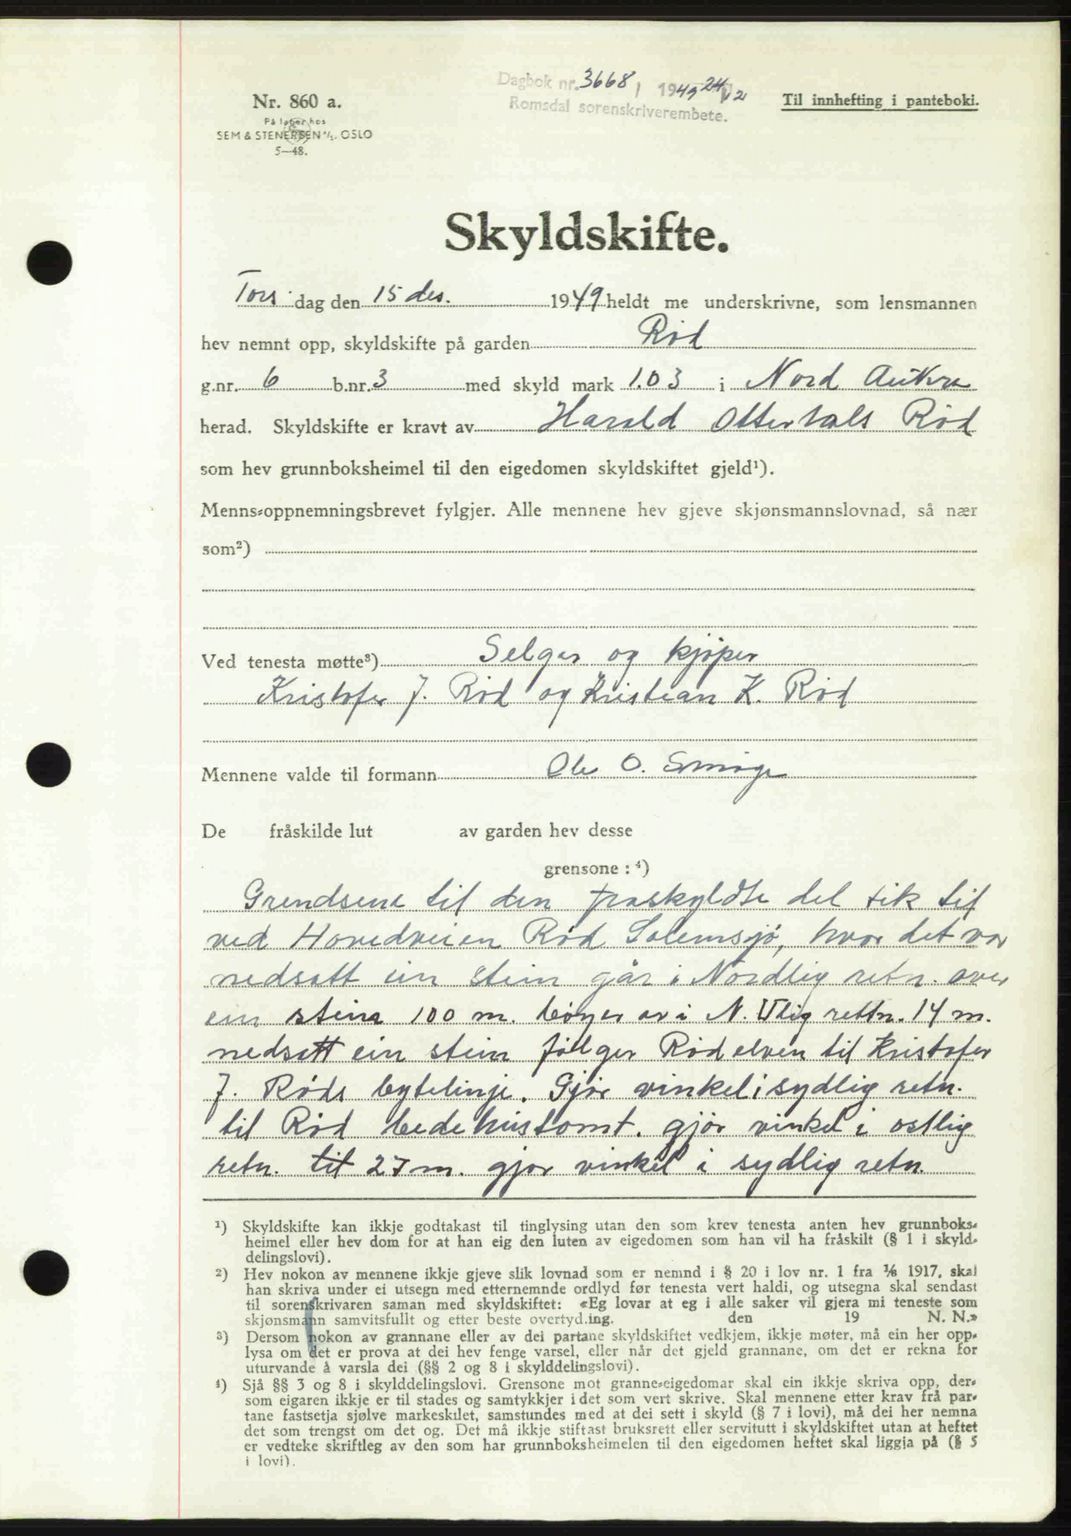 Dagbok nr. 3668 / 1949 24/12
Romsdal sorenskriverembete.
Nr. 860 a.
På lager hos
SEM & STENERSEN A/S. OSLO
5—48.
Til innhefting i panteboki.
Skyldskifte.
Tors dag den 15 des. 1949 heldt me underskrivne, som lensmannen
hev nemnt opp, skyldskifte på garden Rød
g.nr. 6 b.nr. 3 med skyld mark 1.03 i Nord Aukra
herad. Skyldskifte er kravt av Harald Ottertals Rød
som hev grunnboksheimel til den eigedomen skyldskiftet gjeld¹).
Menns-oppnemningsbrevet fylgjer. Alle mennene hev gjeve skjønsmannslovnad, så nær
som²)
Ved tenesta møtte³) Selger og kjøper
Kristofer J. Rød og Kristian K. Rød
Mennene valde til formann Ole O. Småge
De fråskilde lut av garden hev desse
grensone : ⁴)
Grendsene til den fraskyldte del tik til
ved Hovedveien Rød Solemsjø, hvor det var
nedsatt ein stein går i Nordlig retn. over
ein stein 100 m. bøyer av i N. Vlig rettn. 14 m.
nedsatt ein stein følger Rødelven til Kristofer
J. Røds bytelinje. Gjør vinkel i sydlig retn.
til Rød bedehustomt. gjør vinkel i ostlig
retn. til 27 m. gjør vinkel i sydlig retn.
¹) Skyldskifte kan ikkje godtakast til tinglysing utan den som krev tenesta anten hev grunnboks-
heimel eller hev dom for at han eig den luten av eigedomen som han vil ha fråskilt (§ 1 i skyld-
delingslovi).
²) Hev nokon av mennene ikkje gjeve slik lovnad som er nemnd i § 20 i lov nr. 1 fra 1/6 1917, skal
han skriva under ei utsegn med etternemnde ordlyd før tenesta vert haldi, og utsegna skal sendast
til sorenskrivaren saman med skyldskiftet: «Eg lovar at eg i alle saker vil gjera mi teneste som
skjønsmann samvitsfullt og etter beste overtyding. den 19 N. N.»
³) Dersom nokon av grannane eller av dei partane skyldskiftet vedkjem, ikkje møter, må ein her opp-
lysa om det er prova at dei hev fenge varsel, eller når det gjeld grannane, om det er rekna for
uturvande å varsla dei (§§ 2 og 8 i skylddelingslovi).
⁴) Sjå §§ 3 og 8 i skylddelingslovi. Grensone mot granne-eigedomar skal ein ikkje skriva opp, der-
som eigaren ikkje er til stades og samtykkjer i det som vert skrive. Skal mennene etter krav frå par-
tane fastsetja sjølve markeskilet, samstundes med at dei sett i skyld (§ 7 i lovi), må dei her nemna
det som trengst om det og. Det må ikkje stiftast bruksrett eller servitutt i skyldskiftet utan at heftet
er vedteke skriftleg av den som har grunnboksheimelen til den eigedomen heftet skal liggja på (§ 5
i lovi).